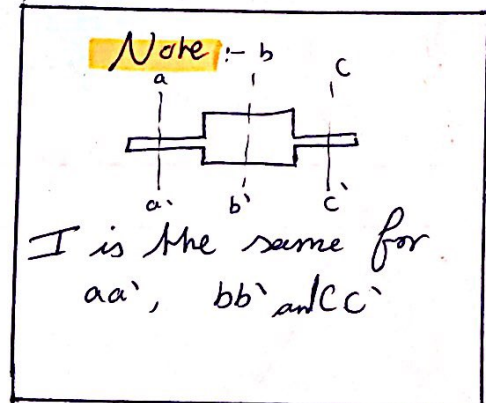 Note :-
a b c
a` b` c`
I is the same for
aa`, bb` and CC`